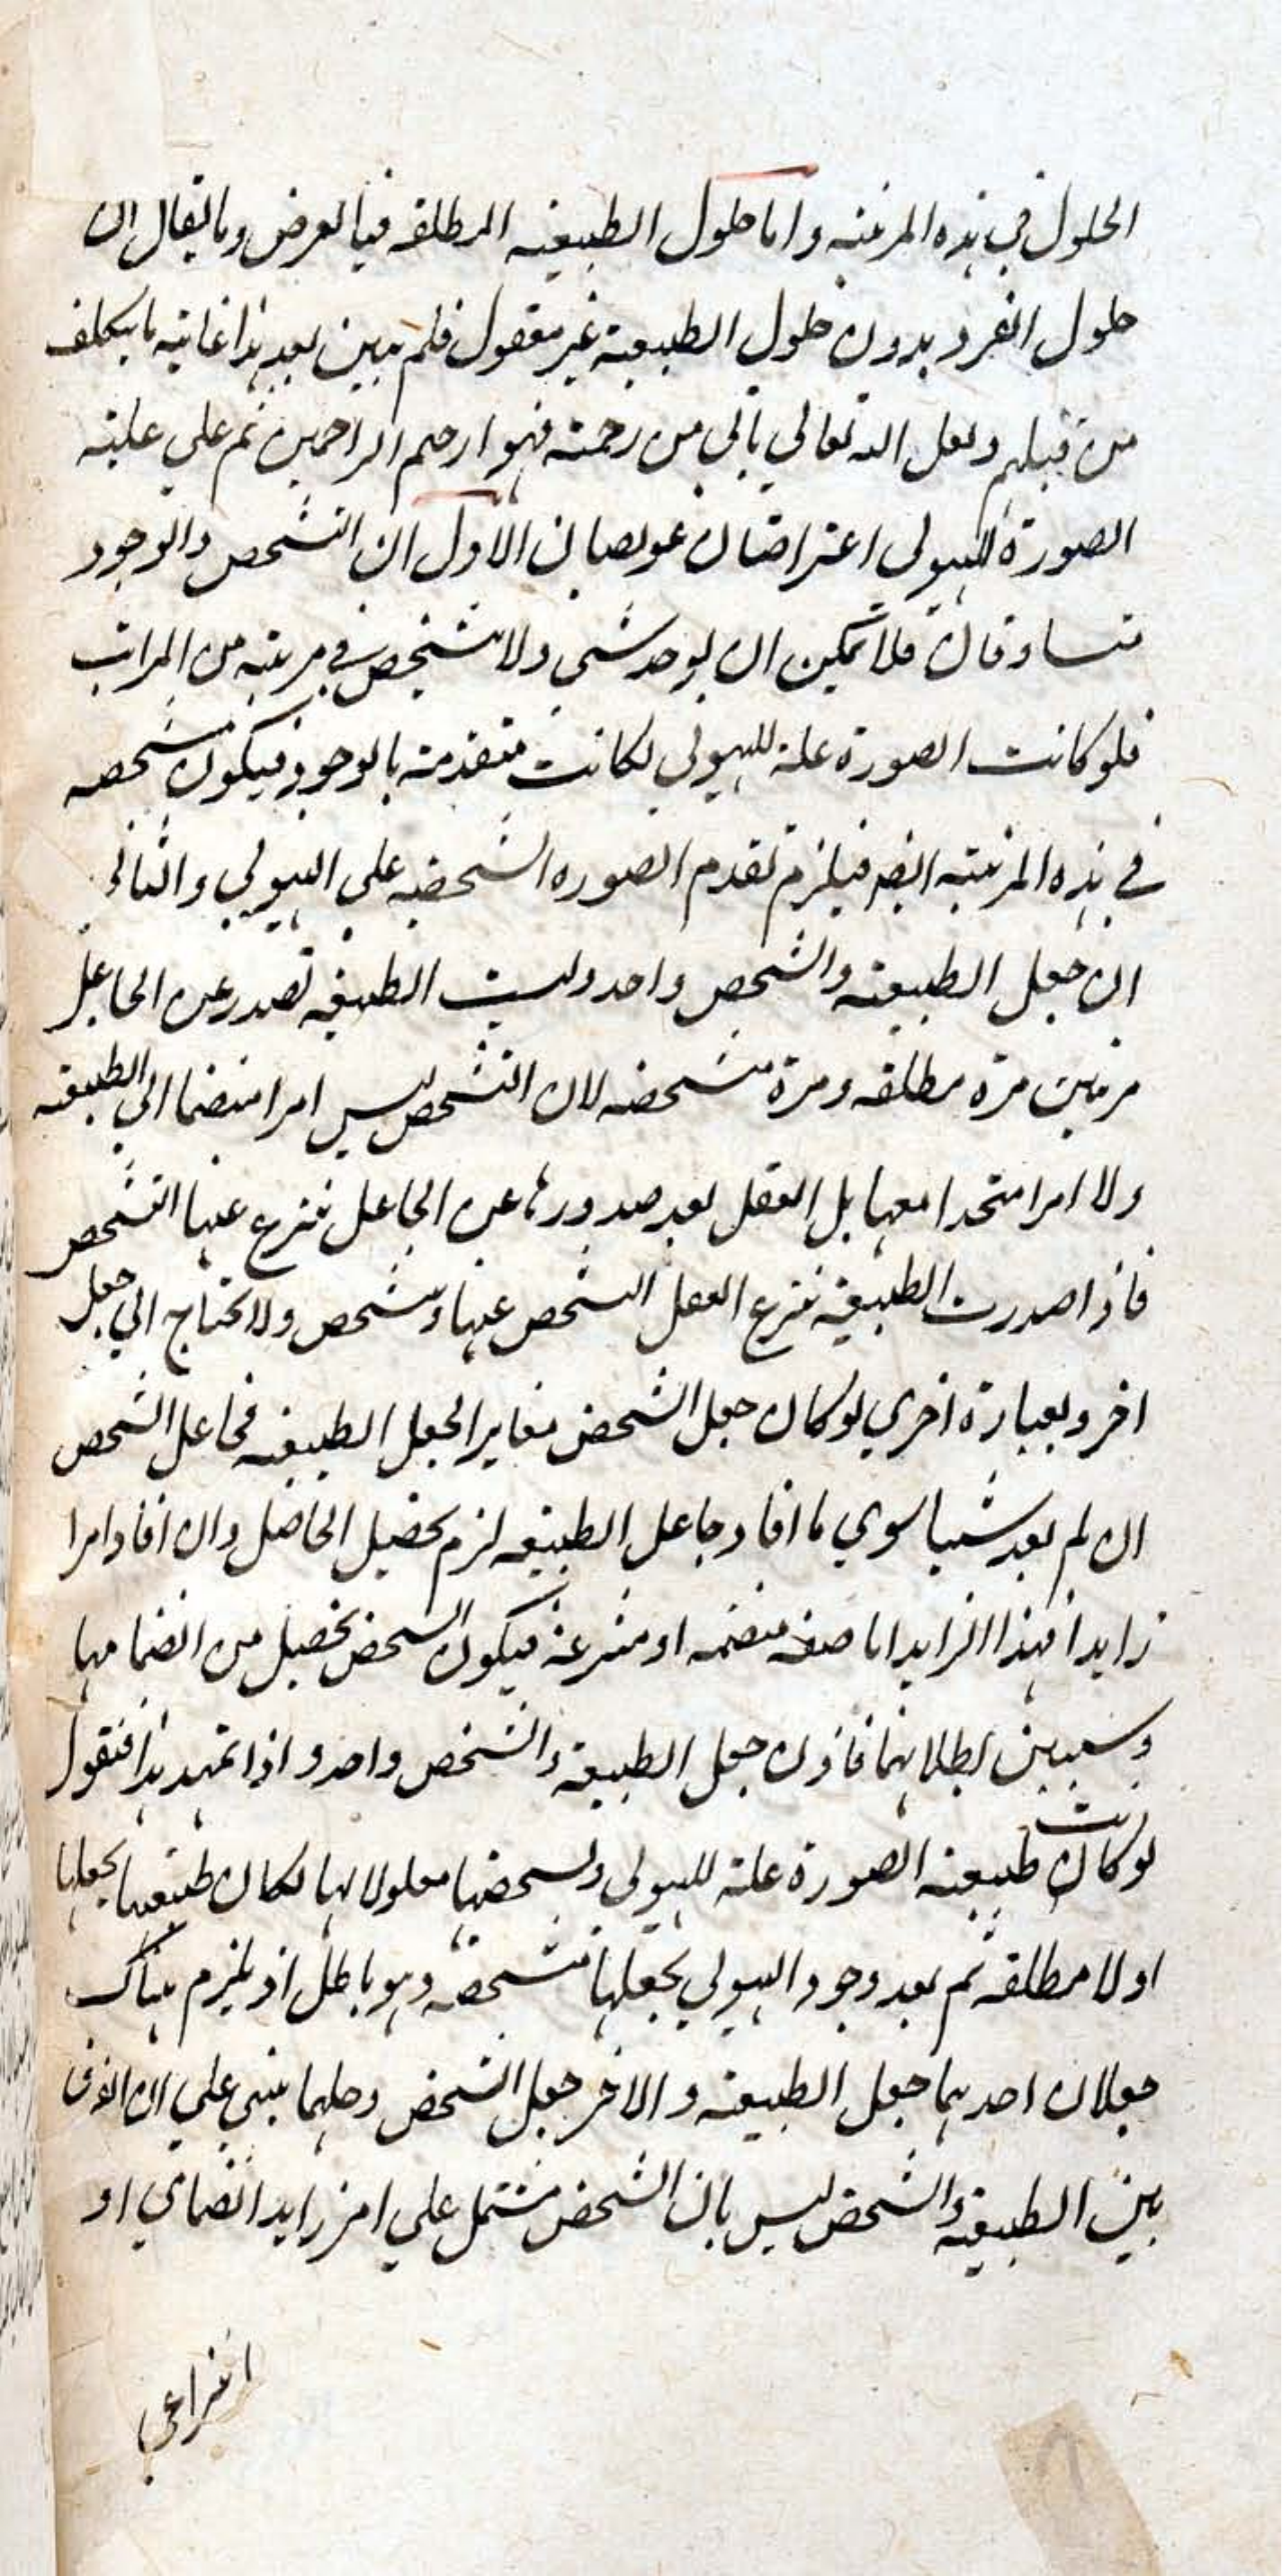 الحلول في هذه المرتبة واما حلول الطبيعة المطلقة فبالعرض وما يقال ان
حلول الفرد بدون حلول الطبيعة غير معقول فلم يبين بعد هذا غاية ما يتكلف
من قبلهم ولعل الله تعالي ياتي من رحمته فهو ارحم الراحمين ثم علي علية
الصورة للهيولي اعتراضان عويصان الاول ان التشخص والوجود
متساوقان فلا يمكن ان يوجد شئ ولا يتشخص في مرتبة من المراتب
فلو كانت الصورة علة للهيولي لكانت متقدمة بالوجود فيكون متشخصة
في هذه المرتبة ايضا فيلزم تقدم الصورة الشخصية علي الهيولي والثاني
ان جعل الطبيعة والشخص واحد وليست الطبيعة تصدر عن الجاعل
مرتين مرة مطلقة ومرة متشخصة لان التشخص ليس امرا منضما الي الطبيعة
ولا امرا متحدا معها بل العقل بعد صدورها عن الجاعل ينتزع عنها التشخص
فاذا صدرت الطبيعة ينتزع العقل التشخص عنها وتشخص ولا يحتاج الي جعل
اخر وبعبارة اخري لو كان جعل الشخص مغايرا لجعل الطبيعة فجاعل الشخص
ان لم يفد شيئا سوي ما افاد جاعل الطبيعة لزم تحصيل الحاصل وان افاد امرا
زايدا فهذا الزايد اما صفة منضمة او منتزعة فيكون الشخص تحصيل من انضمامها
وسيبين بطلانهما فاذن جعل الطبيعة والشخص واحد واذا تمهد هذا فنقول
لو كانت طبيعة الصورة علة للهيولي وتشخصها معلولا لها لكان طبيعتها يجعلها
اولا مطلقة ثم بعد وجود الهيولي يجعلها متشخصة وهو باطل اذ يلزم هناك
جعلان احدهما جعل الطبيعة والاخر جعل الشخص وحلهما يبني علي ان الفرق
بين الطبيعة والشخص ليس بان الشخص مشتمل علي امر زايد انضمامي او
انتزاعي